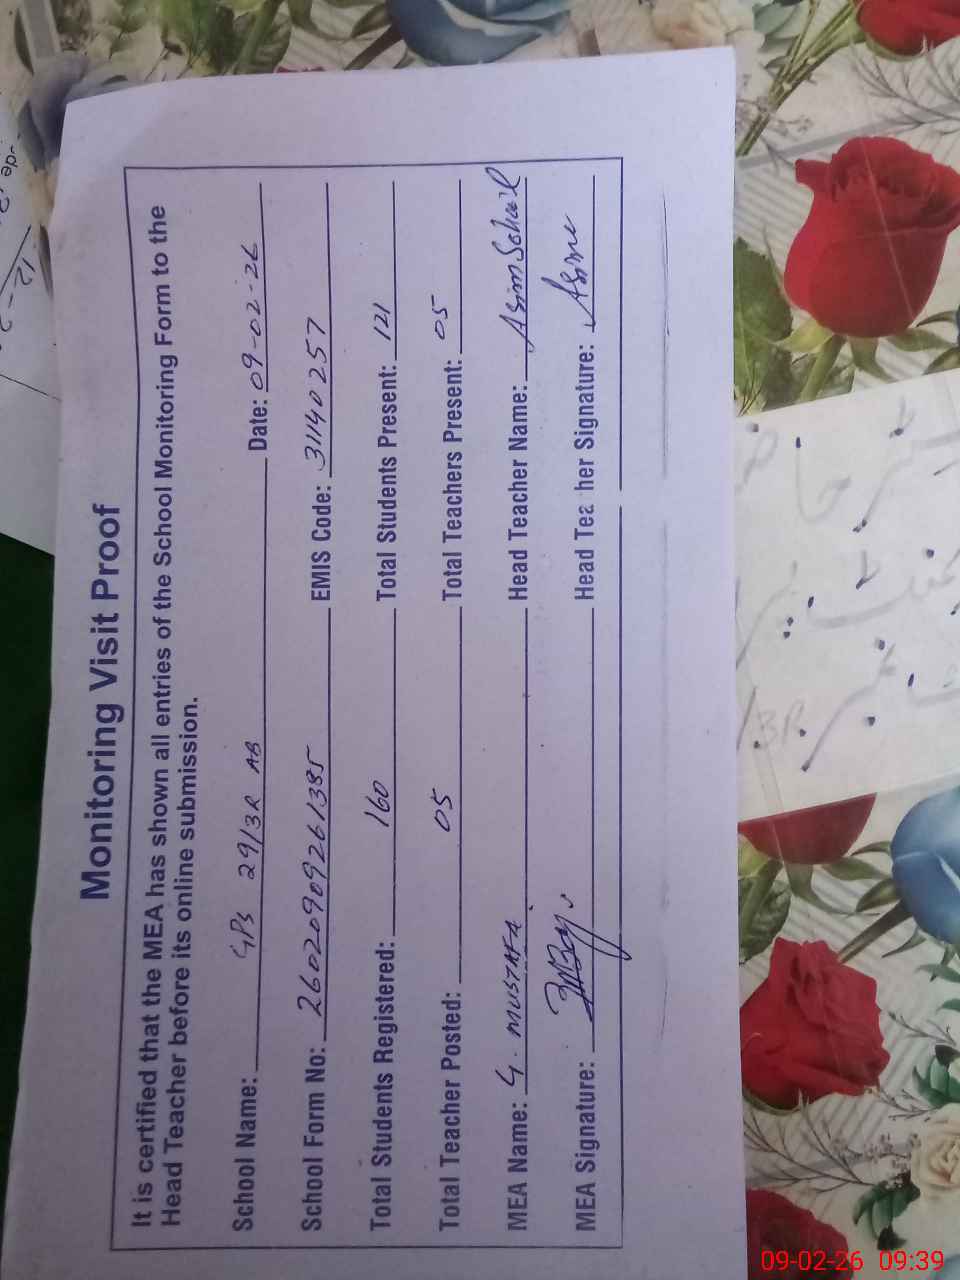 Monitoring Visit Proof
It is certified that the MEA has shown all entries of the School Monitoring Form to the
Head Teacher before its online submission.
School Name: GPS 29/3R AB Date: 09-02-26
School Form No: 26020909261385 EMIS Code: 31140257
Total Students Registered: 160 Total Students Present: 121
Total Teacher Posted: 05 Total Teachers Present: 05
MEA Name: G. MUSTAFA Head Teacher Name: Asim Sohail
MEA Signature: Head Teacher Signature: Asim
09-02-26 09:39